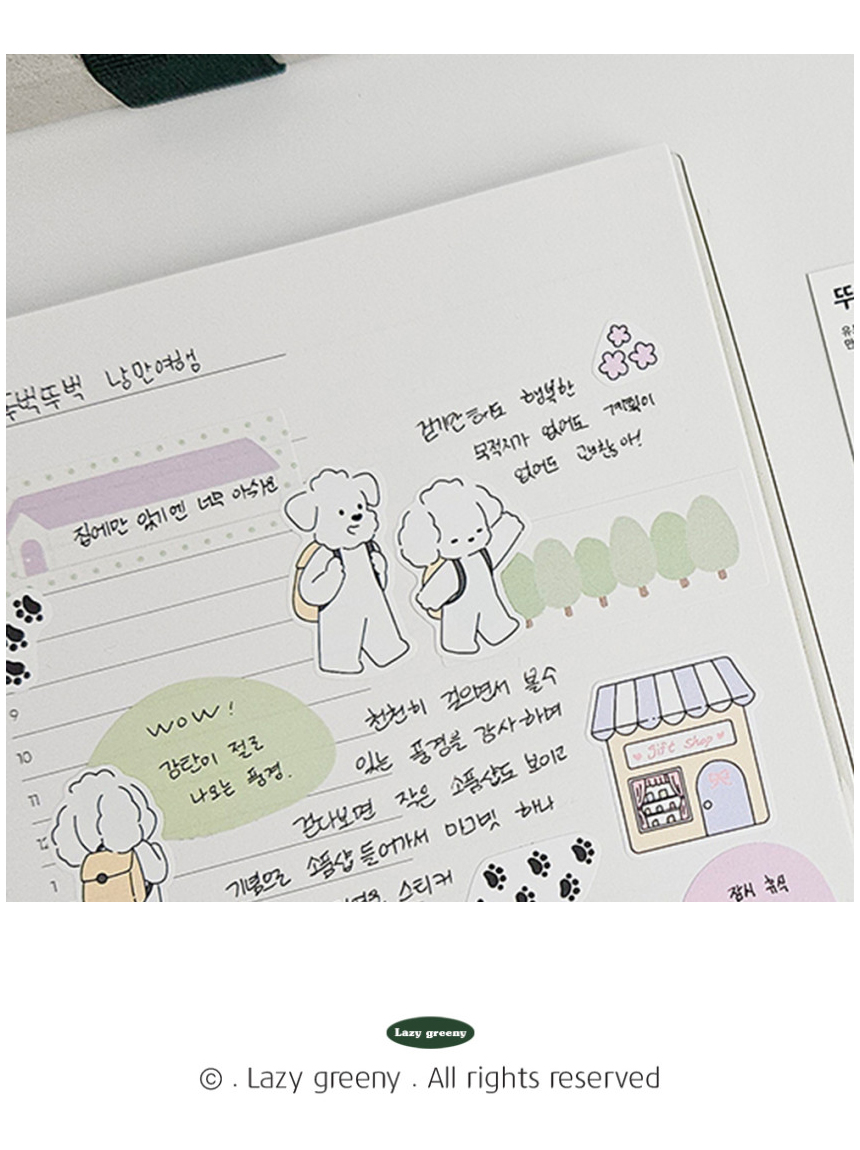 뚜벅뚜벅 낭만여행
걷기만 해도 행복한
목적지가 없어도 계획이
없어도 괜찮아!
집에만 있기엔 너무 아쉬운
WOW!
감탄이 절로
나오는 풍경.
천천히 걸으면서 볼 수
있는 풍경을 감사하며
걷다보면 작은 소품샵도 보이고
기념으로 소품샵 들어가서 마그넷 하나
스티커
gift shop
잠시 휴식
9
10
11
12
1
뚜
유
만
Lazy greeny
© . Lazy greeny . All rights reserved